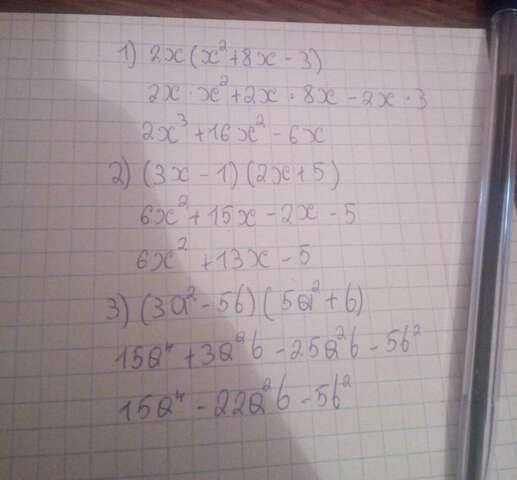 1) 2x(x²+8x-3)
2x·x²+2x·8x-2x·3
2x³+16x²-6x
2) (3x-1)(2x+5)
6x²+15x-2x-5
6x²+13x-5
3) (3a²-5b)(5a²+b)
15a⁴+3a²b-25a²b-5b²
15a⁴-22a²b-5b²